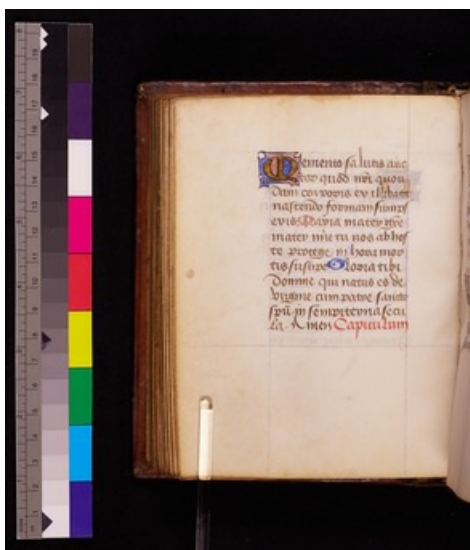 Memento salutis auc
tor quod nr̄i quon
dam corporis ex illibata
nascendo formam sump
eris Maria mater grē
mater mīe tu nos ab hos
te protege in hora mor
tis suscipe Gloria tibi
Domine qui natus es de
virgine cum patre sancto
spū in sempiterna secu
la. Amen Capitulum